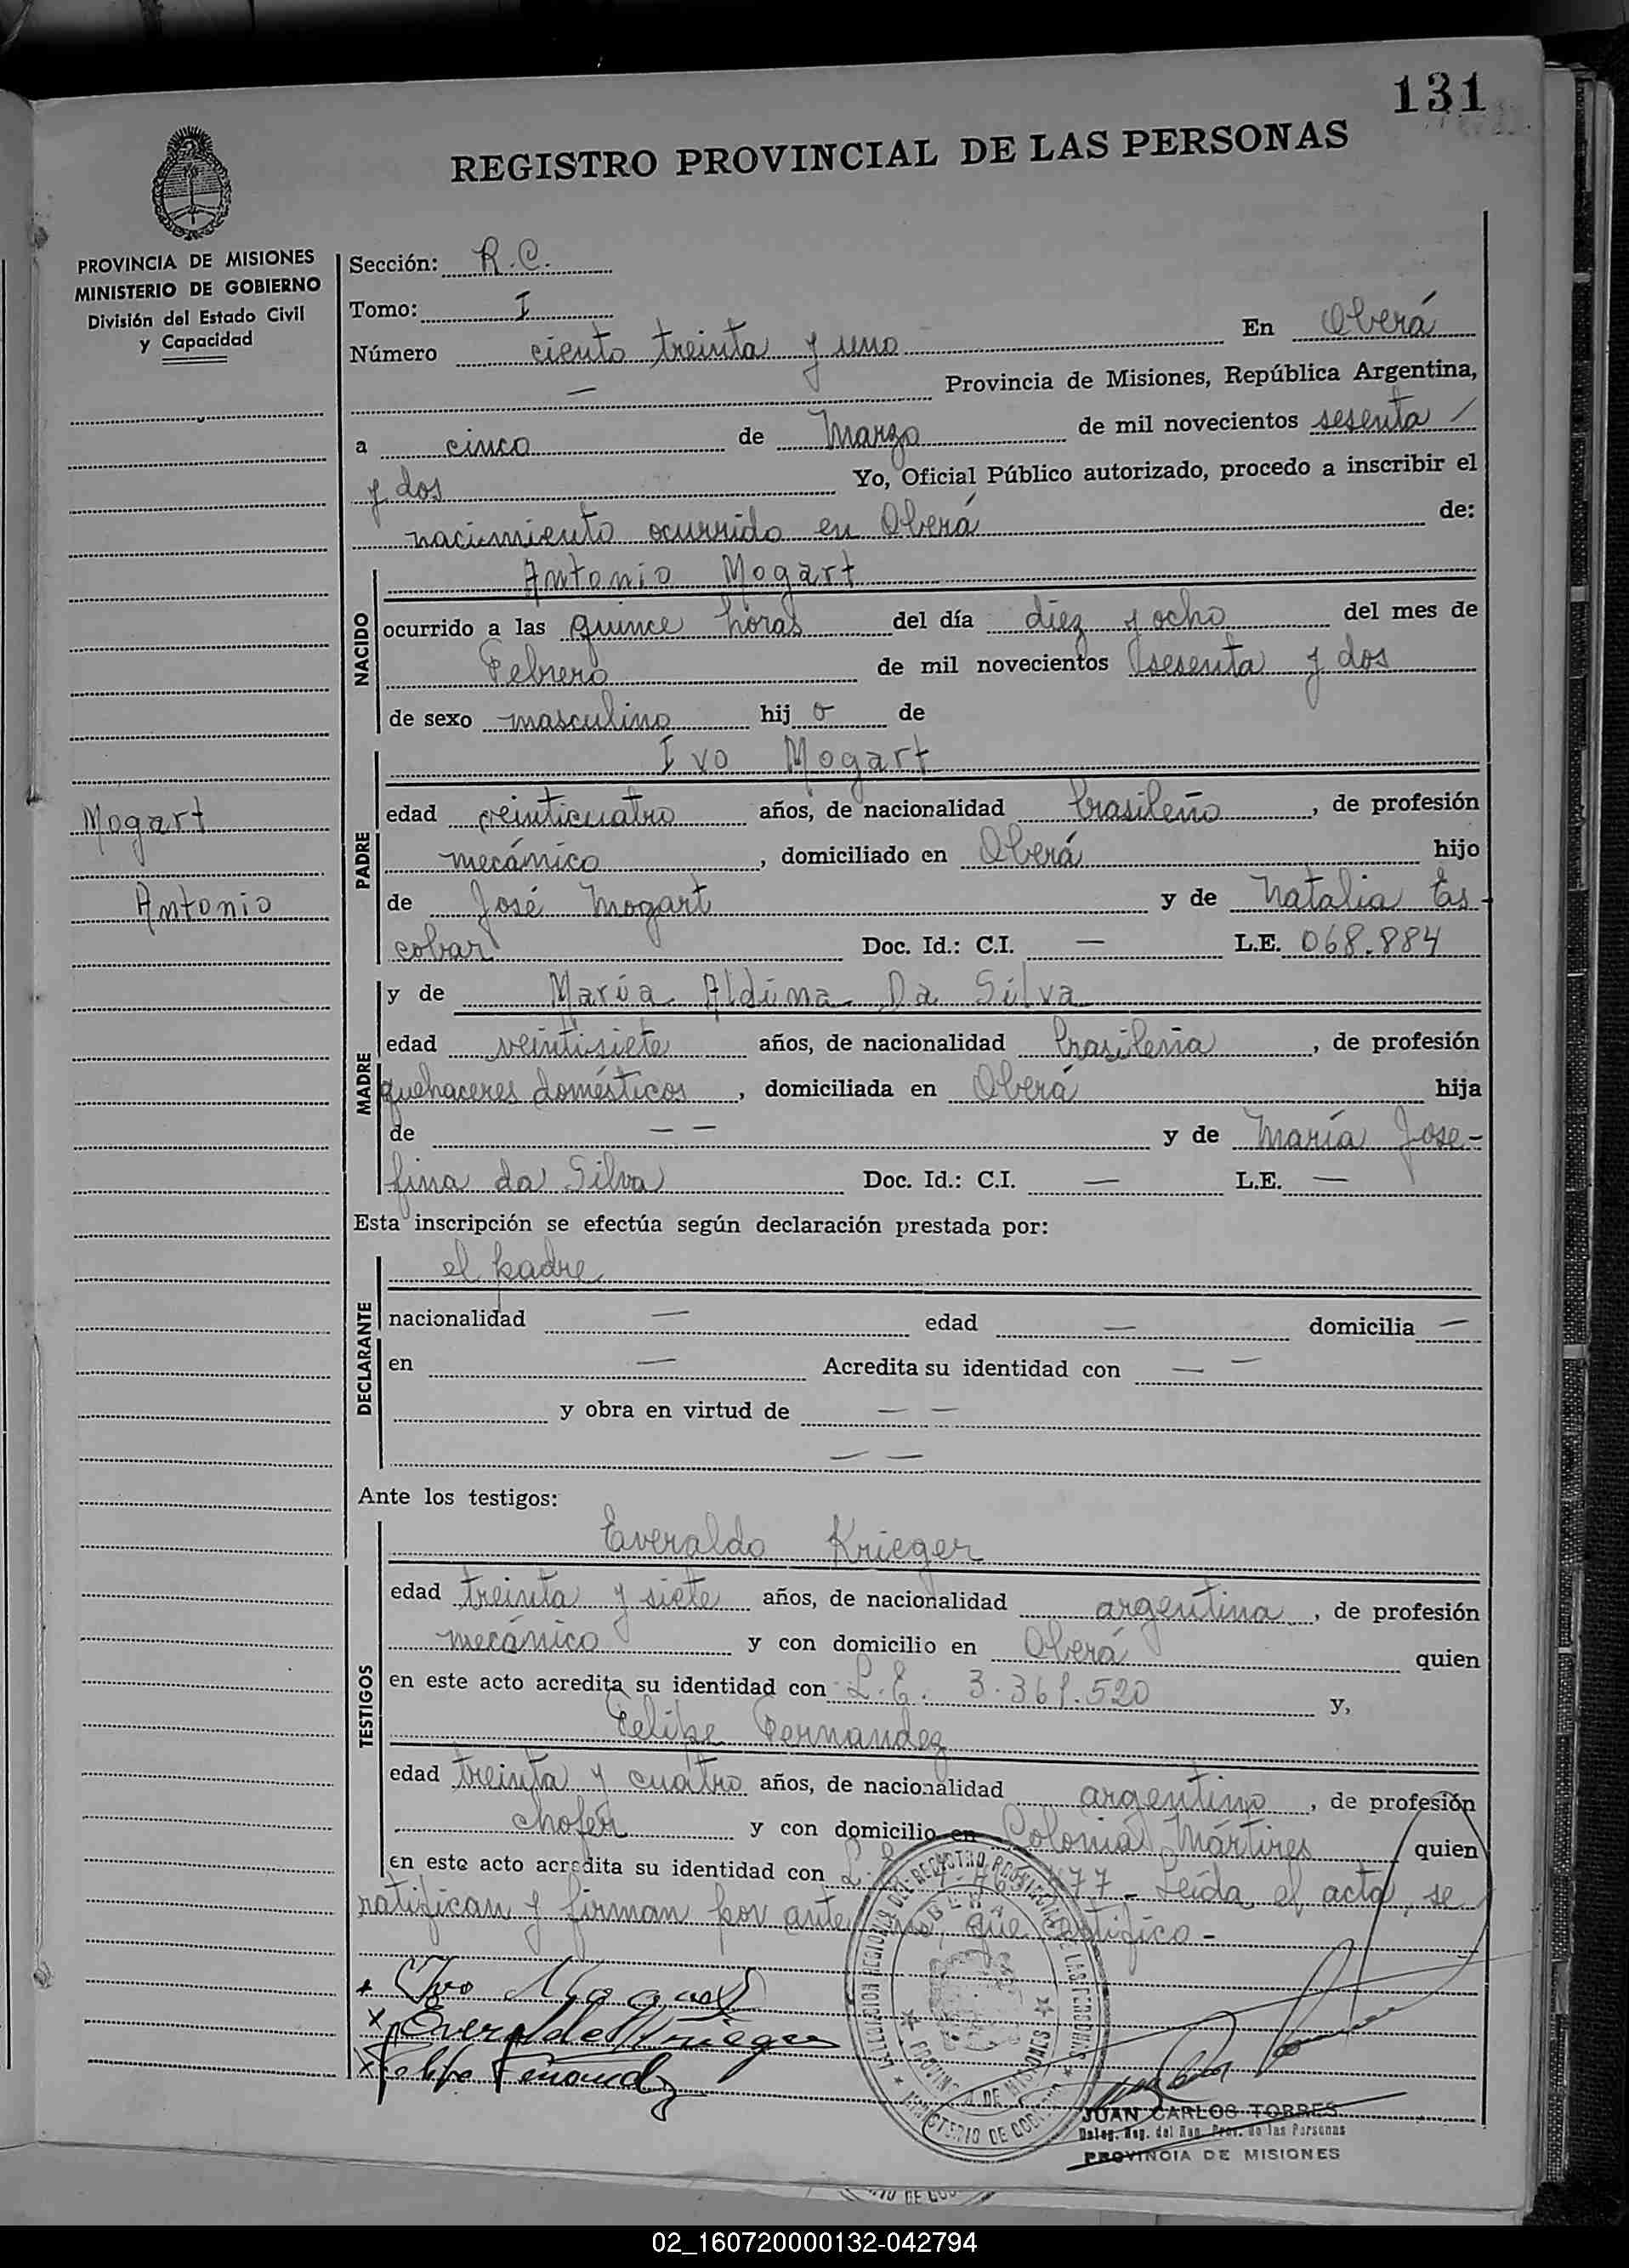 131
REGISTRO PROVINCIAL DE LAS PERSONAS
PROVINCIA DE MISIONES
MINISTERIO DE GOBIERNO
División del Estado Civil
y Capacidad
Mogart
Antonio
Sección: R.C.
Tomo: I
Número ciento treinta y uno En Oberá
— Provincia de Misiones, República Argentina,
a cinco de Marzo de mil novecientos sesenta /
y dos Yo, Oficial Público autorizado, procedo a inscribir el
nacimiento ocurrido en Oberá de:
NACIDO
Antonio Mogart
ocurrido a las quince horas del día diez y ocho del mes de
Febrero de mil novecientos sesenta y dos
de sexo masculino hij o de
PADRE
Ivo Mogart
edad veinticuatro años, de nacionalidad brasileño, de profesión
mecánico, domiciliado en Oberá hijo
de José Mogart y de Natalia Es-
cobar Doc. Id.: C.I. — L.E. 068.884
MADRE
y de María Aldina Da Silva
edad veintisiete años, de nacionalidad brasileña, de profesión
quehaceres domésticos, domiciliada en Oberá hija
de — — y de María Jose-
fina da Silva Doc. Id.: C.I. — L.E. —
Esta inscripción se efectúa según declaración prestada por:
DECLARANTE
el padre
nacionalidad — edad — domicilia —
en — Acredita su identidad con — —
y obra en virtud de — —
— —
Ante los testigos:
TESTIGOS
Everaldo Krieger
edad treinta y siete años, de nacionalidad argentina, de profesión
mecánico y con domicilio en Oberá quien
en este acto acredita su identidad con L.E. 3.361.520 y,
Felipe Fernandez
edad treinta y cuatro años, de nacionalidad argentino, de profesión
chofer y con domicilio en Colonia Mártires quien
en este acto acredita su identidad con L.E. 77 - Leída el acta, se
ratifican y firman por ante mí, que certifico -
+ Ivo Mogart
x Everaldo Krieger
x Felipe Fernandez
JUAN CARLOS TORRES
Deleg. Reg. del Reg. Prov. de las Personas
PROVINCIA DE MISIONES
02_160720000132-042794